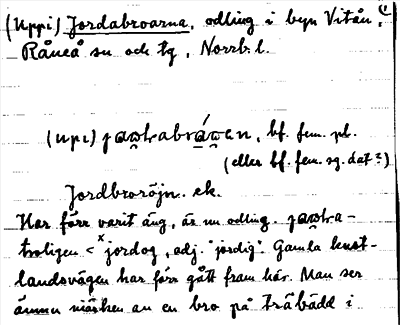 (Uppi) Jordabroarna, odling i byn Vitån,
Råneå sn och tg, Norrb. l.
(upi) bf. fem. pl.
(eller bf. fem. sg. dat?)
Jordbroröjn. ek.
Har förr varit äng, är nu odling.
troligen < *jordog, adj. "jordig". Gamla kust-
landsvägen har förr gått fram här. Man ser
ännu märken av en bro på träbädd i